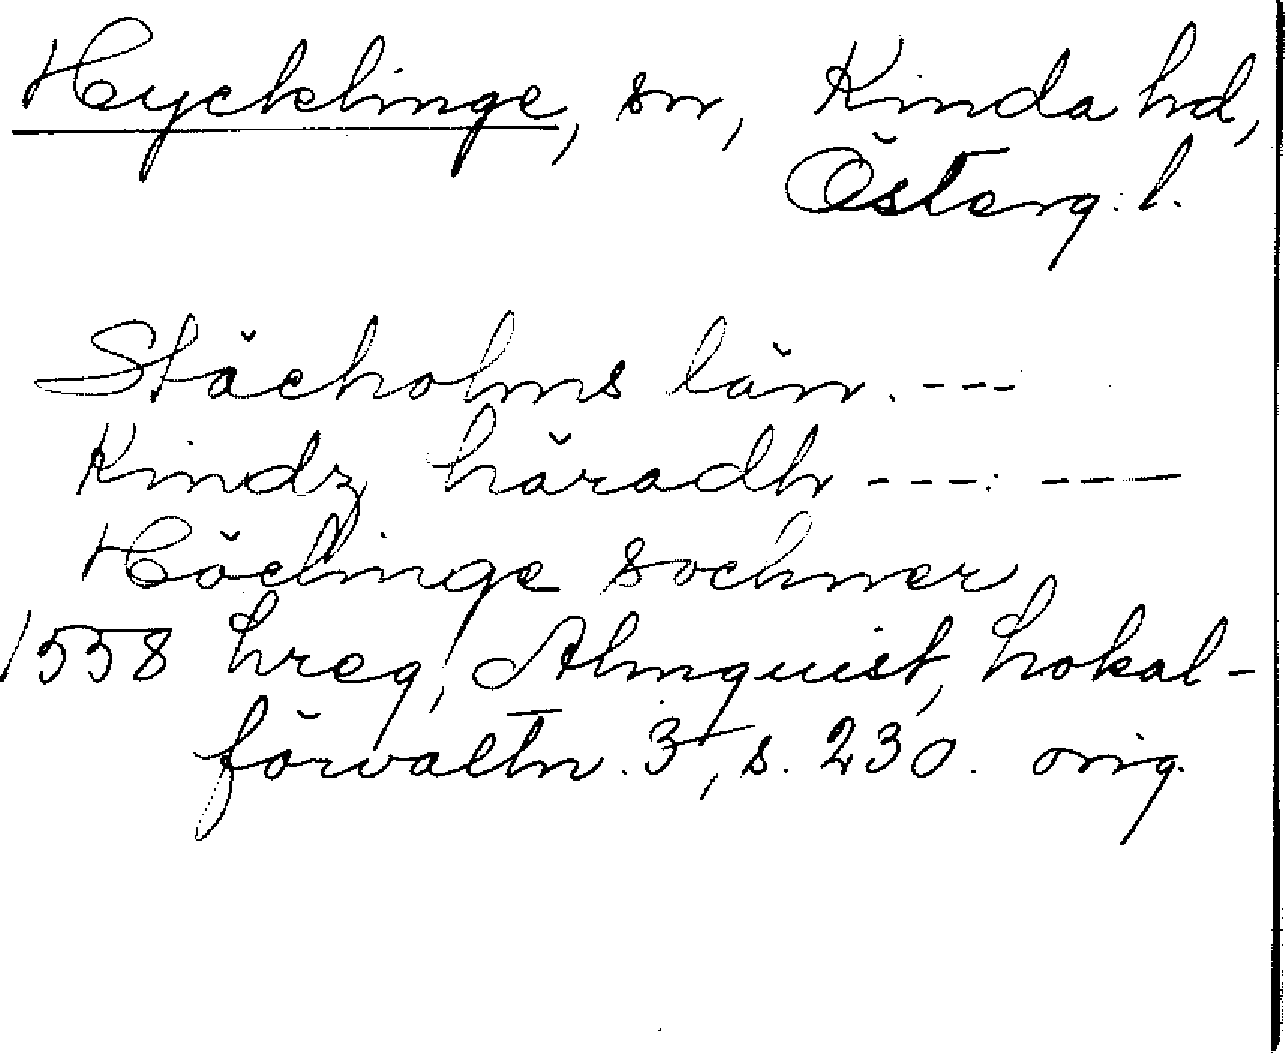 Hycklinge, sn, Kinda hd,
Österg. l.
Stächolms län. ---
Kindz häradh ---. ---
Höclinge sochner
1558 hreg, Almquist, Lokal-
förvaltn. 3, s. 230. orig.